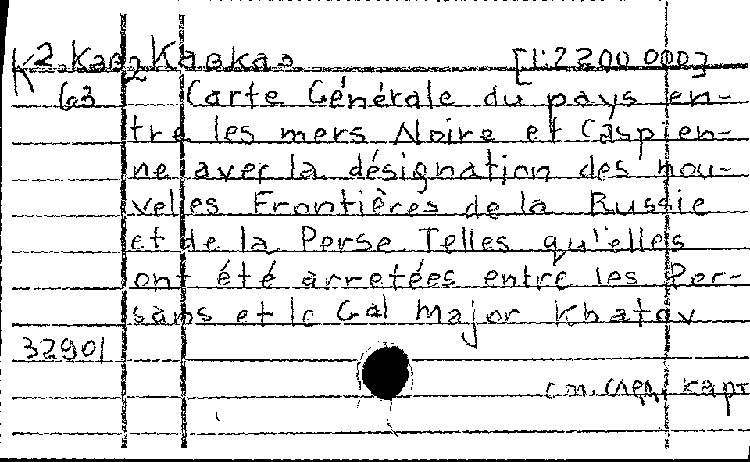 К2.Кав2 Кавказ [1:2200 000]
63 Carte Générale du pays en-
tre les mers Noire et Caspien-
ne avec la désignation des nou-
velles Frontières de la Russie
et de la Perse Telles qu'elles
ont été arretées entre les Per-
sans et le Gal Major Khatov
32901
см. след. карт